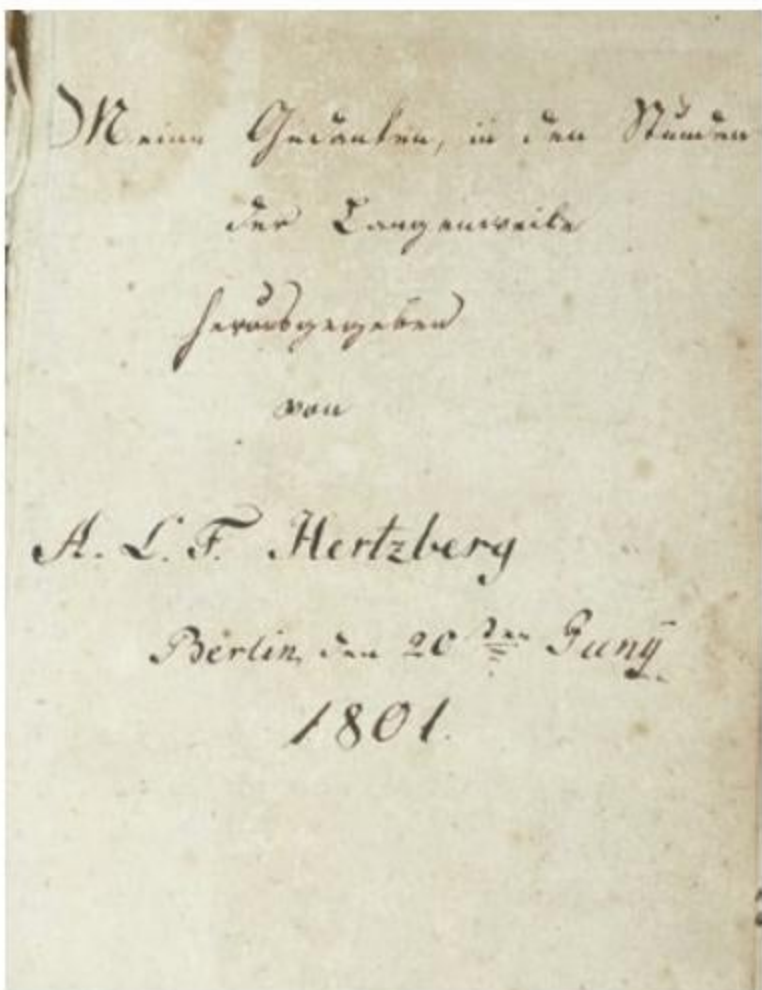 Meine Gedanken, in den Stunden
der Langenweile
herausgegeben
von
A. L. F. Hertzberg
Berlin, den 20 ten Juny
1801.